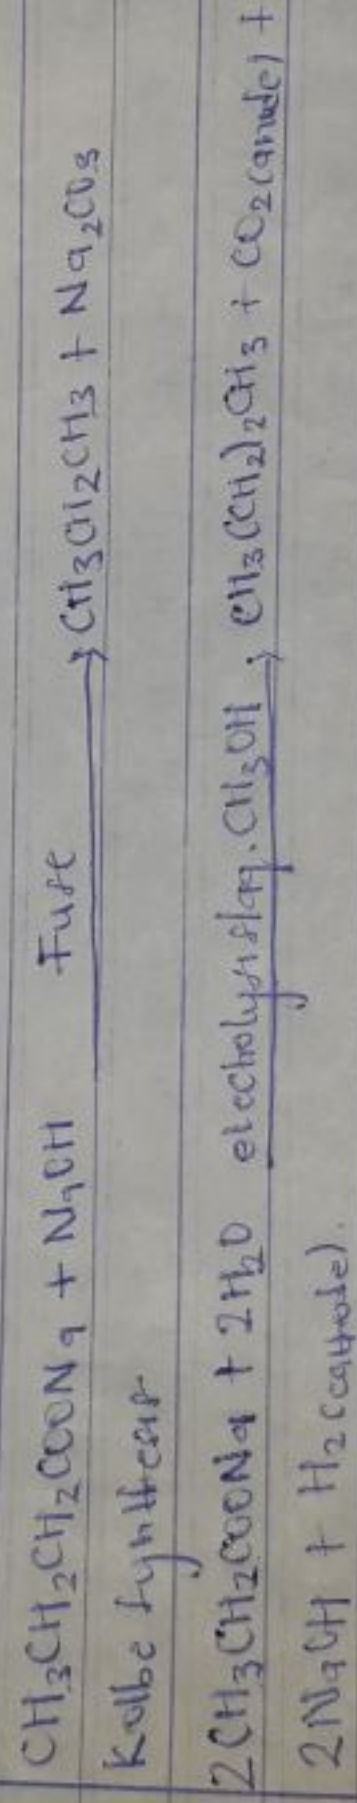 CH3CH2CH2COONa + NaOH Fuse → CH3CH2CH3 + Na2CO3
Kolbe Synthesis
2CH3CH2COONa + 2H2O electrolysis/aq. CH3OH → CH3(CH2)2CH3 + CO2(anode) +
2NaOH + H2(cathode).